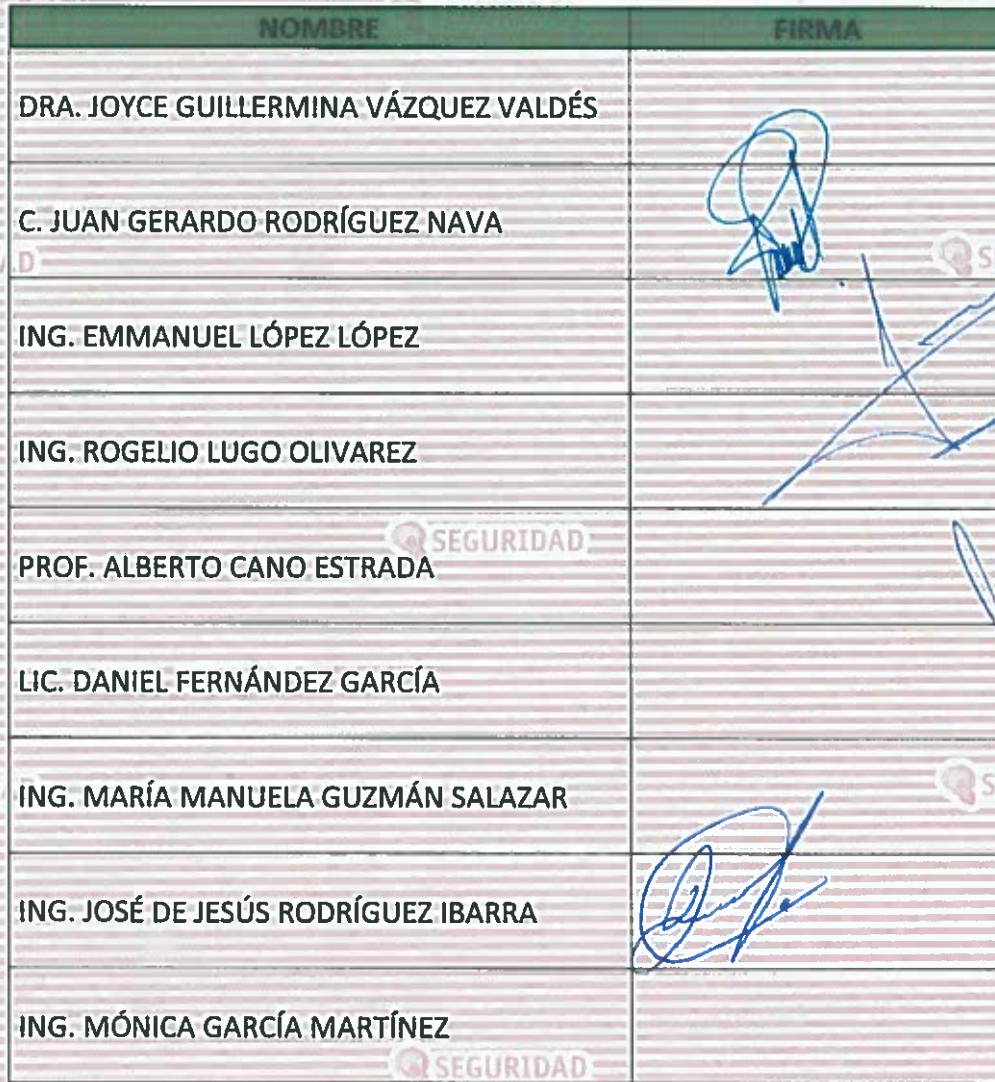 NOMBRE FIRMA
DRA. JOYCE GUILLERMINA VÁZQUEZ VALDÉS
C. JUAN GERARDO RODRÍGUEZ NAVA
ING. EMMANUEL LÓPEZ LÓPEZ
ING. ROGELIO LUGO OLIVAREZ
SEGURIDAD
PROF. ALBERTO CANO ESTRADA
LIC. DANIEL FERNÁNDEZ GARCÍA
ING. MARÍA MANUELA GUZMÁN SALAZAR
ING. JOSÉ DE JESÚS RODRÍGUEZ IBARRA
ING. MÓNICA GARCÍA MARTÍNEZ
SEGURIDAD